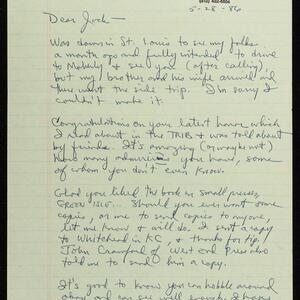 5-28-86
Dear Jack—
Was down in St. Louis to see my folks
a month ago and fully intended to drive
to Moberly & see you (after calling),
but my brother and his wife arrived and
there went the side trip. I'm sorry I
couldn't make it.
Congratulations on your latest honor which
I read about in the TRIB & was told about
by friends. It's amazing (or maybe not)
how many admirers you have, some
of whom you don't even know.
Glad you liked the book on small presses,
GREEN ISLE... Should you ever want some
copies, or me to send copies to anyone,
let me know & will do. I sent a copy
to Whitehead in KC, & thanks for tip.
John Crawford of West End Press also
told me to send him a copy.
It's good to know you can hobble around
okay and can see well enough